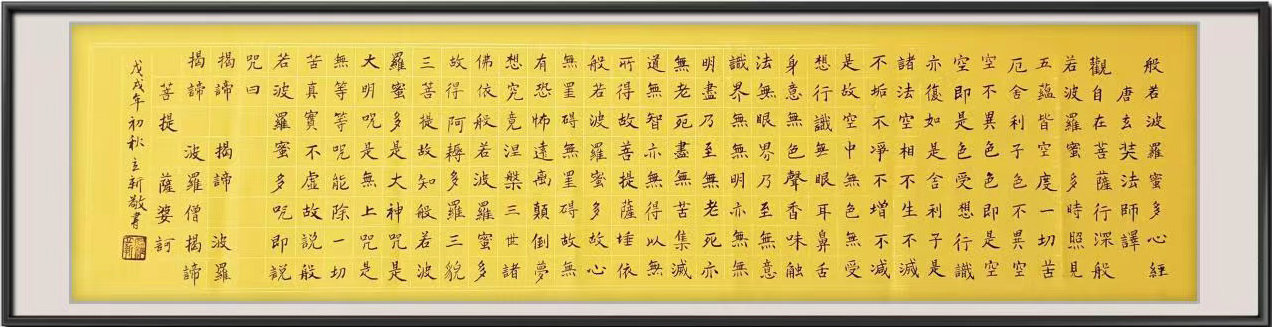 般若波羅蜜多心經
唐玄奘法師譯
觀自在菩薩行深般
若波羅蜜多時照見
五蘊皆空度一切苦
厄舍利子色不異空
空不異色色即是空
空即是色受想行識
亦復如是舍利子是
諸法空相不生不滅
不垢不凈不增不減
是故空中無色無受
想行識無眼耳鼻舌
身意無色聲香味觸
法無眼界乃至無意
識界無無明亦無無
明盡乃至無老死亦
無老死盡無苦集滅
道無智亦無得以無
所得故菩提薩埵依
般若波羅蜜多故心
無罣碍無罣碍故無
有恐怖遠离顛倒夢
想究竟涅槃三世諸
佛依般若波羅蜜多
故得阿耨多羅三藐
三菩提故知般若波
羅蜜多是大神咒是
大明咒是無上咒是
無等等咒能除一切
苦真實不虛故說般
若波羅蜜多咒即說
咒曰
揭諦 揭諦 波羅
揭諦 波羅僧揭諦
菩提 薩婆訶
戊戌年初秋立新敬書